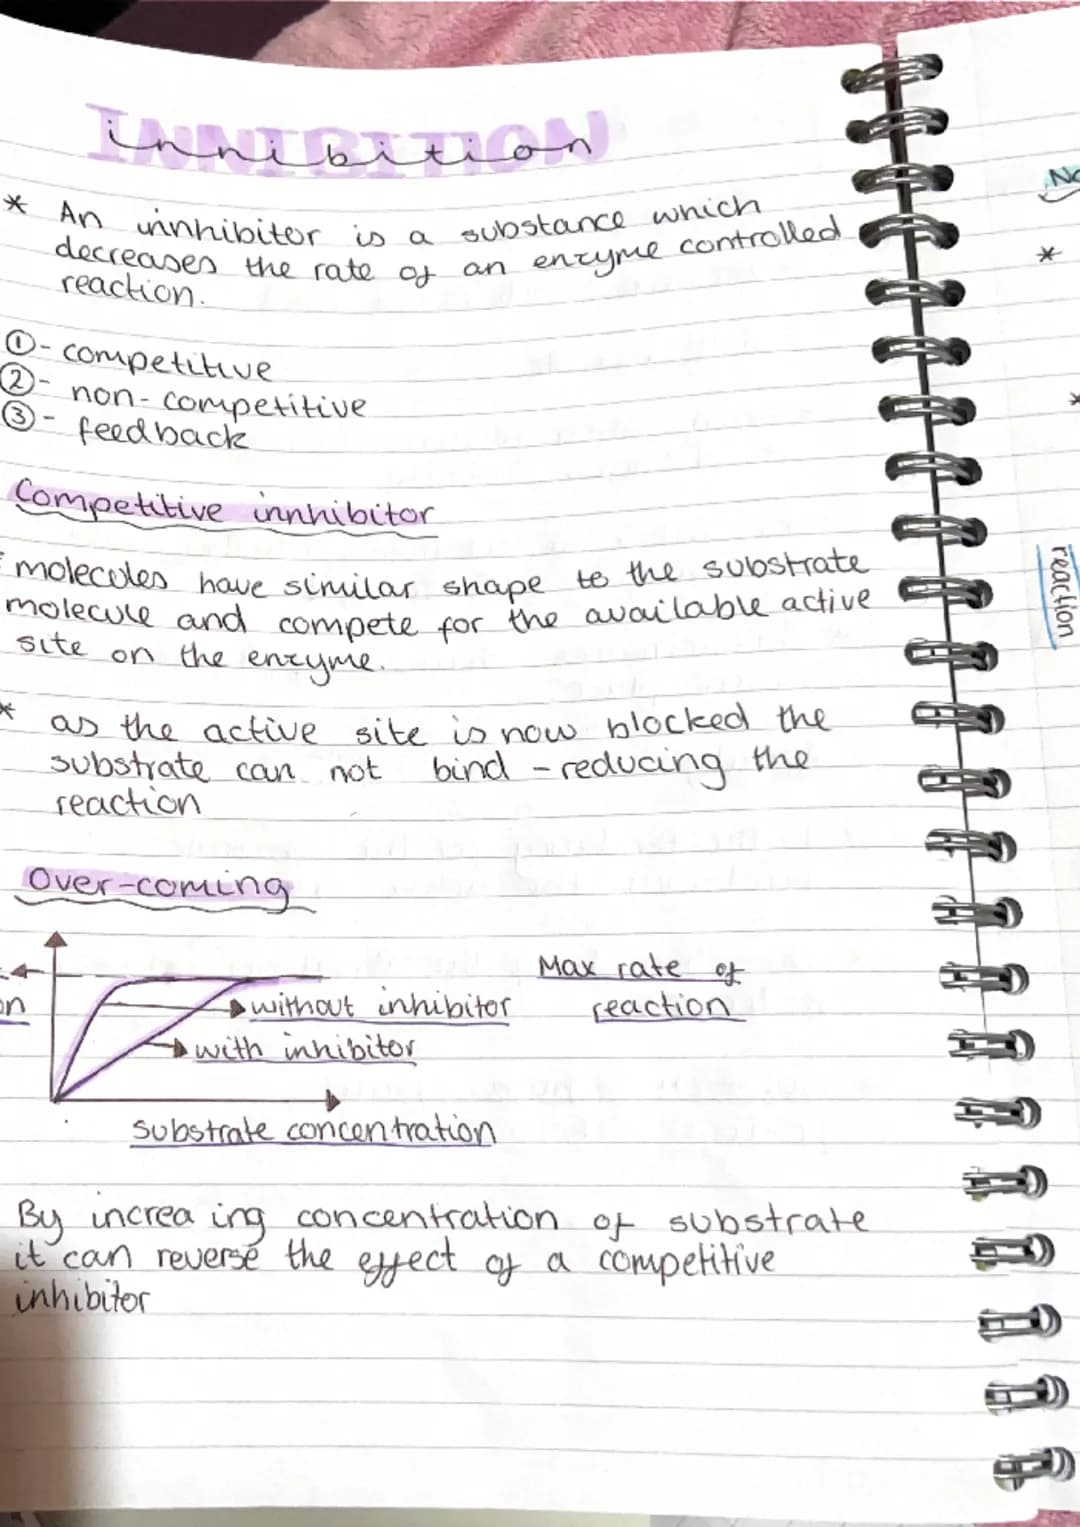 INNIBITION
innibition
* An innhibitor is a substance which
decreases the rate of an enzyme controlled
reaction.
①- competitive
②- non-competitive
③- feedback
Competitive innhibitor
molecules have similar shape to the substrate
molecule and compete for the available active
site on the enzyme.
* as the active site is now blocked the
substrate can not bind - reducing the
reaction
Over-coming
Max rate of
reaction
without inhibitor
with inhibitor
substrate concentration
By increa ing concentration of substrate
it can reverse the effect of a competitive
inhibitor
*
reaction